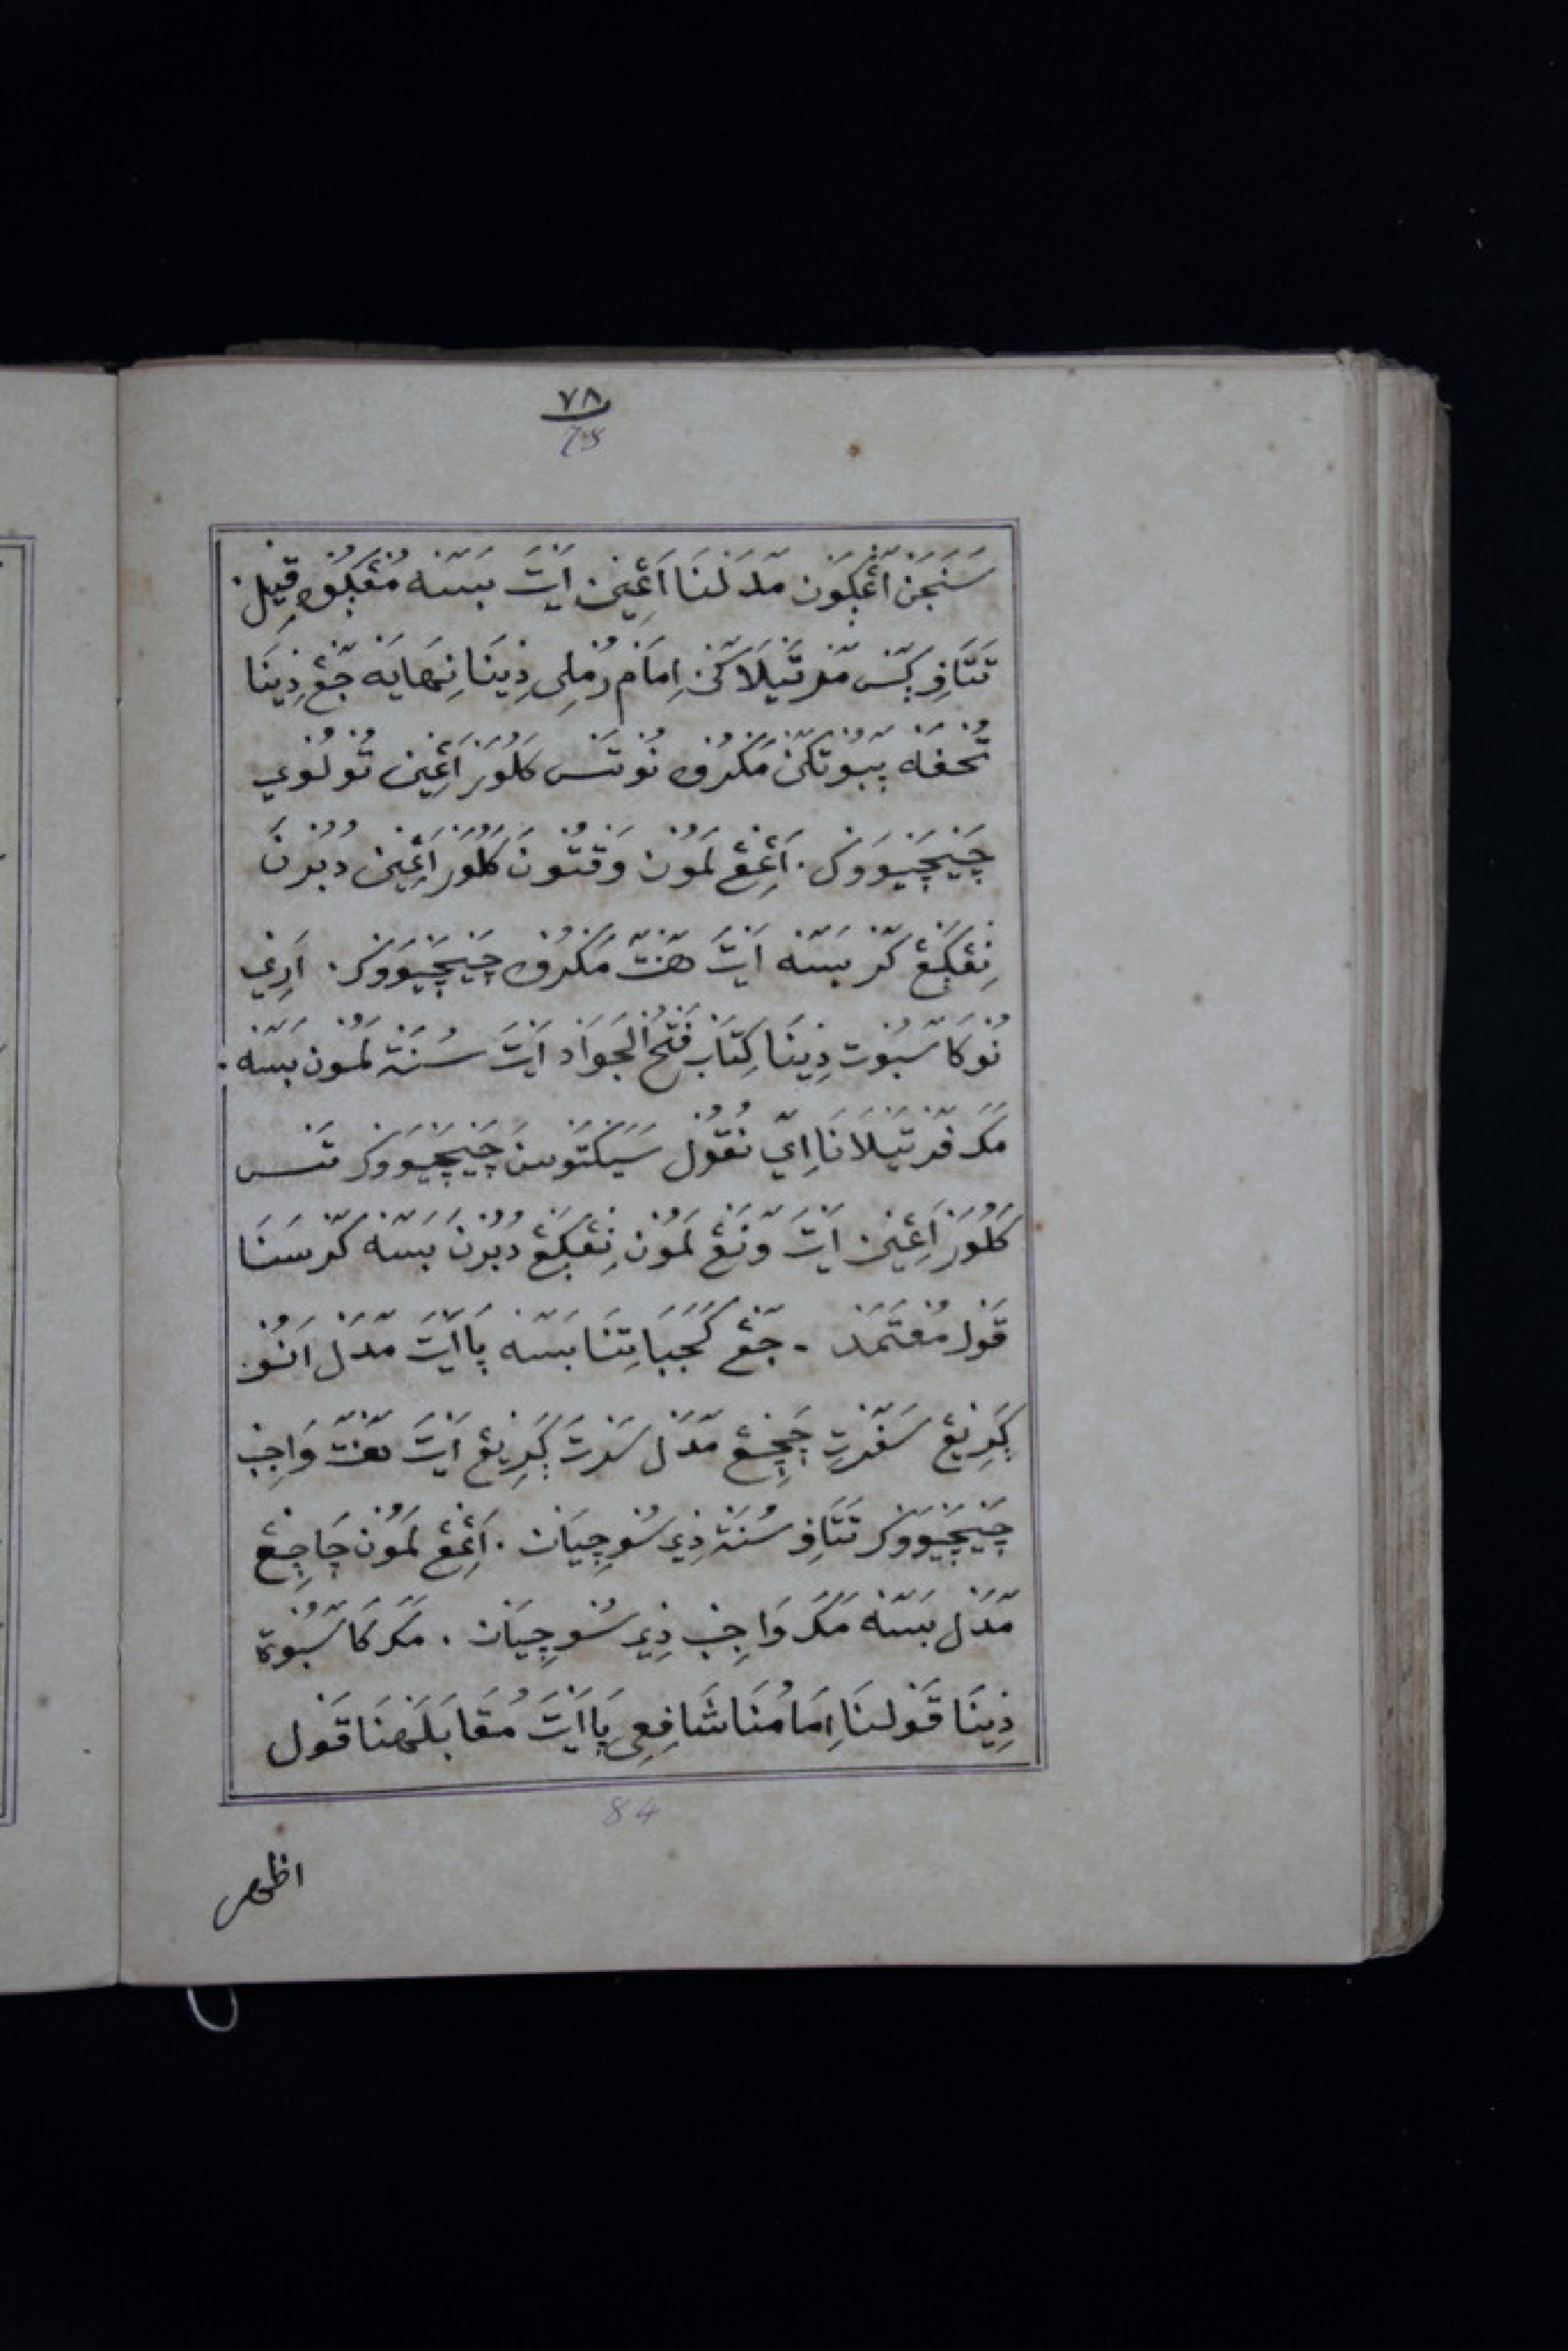 ٧٨
78
سَنجَن اَڠْكَون مَدَلنَا اَڠِين اَيتَ بَسَه مُڠْكُوه قِيلَ
تَتَافِ كَس مَرتَيلَاكَن اِمَام رَملِي دِينَا نِهَايَه جَڠ دِينَا
تُحفَه يَبُوتكَن مَكرُوه نُوتَس كَلُوَر اَڠِين تُولُوي
چَيچَيوَوكر . اَڠِڠ لَمُون وَقتُون كَلُوَر اَڠِين دُبُرنَ
نِڠْكَڠ كَر بَسَه اَيتَ هَنت مَكرُوه چَيچَيوَوكر . اَرِي
نُو كَاسَبُوت دِينَا كِتَاب فَتحُ الجَوَاد اَيتَ سُنَة لَمُون بَسَه .
مَكَ فَرتَيلَانَا اِي نُقُول سَيَكتَوسنَ چَيچَيوَوكر تَس
كَلُوَر اَڠِين اَيتَ وَنَڠ لَمُون نِڠْكَڠ دُبُرنَ بَسَه كَرسَنَا
قَول مُعتَمَد - جَڠ كَجَبَاتِنَا بَسَه يَااَيتَ مَدَل اَنُو
كَرِيڠ سَفَرتِ چَچِڠ مَدَل سَرتَ كَرِيڠ اَيتَ هَنت وَاجِب
چَيچَيوَوكر تَتَافِ سُنَة دِي سُوچِيَان . اَڠِڠ لَمُون چَاچِڠ
مَدَل بَسَه مَكَ وَاجِب دِي سُوچِيَان . مَكَ كَاسَبُوة
دِينَا قَولنَا اِمَامُنَا شَافِعِي يَااَيتَ مُقَابَلَهنَا قَول
84
اظهر